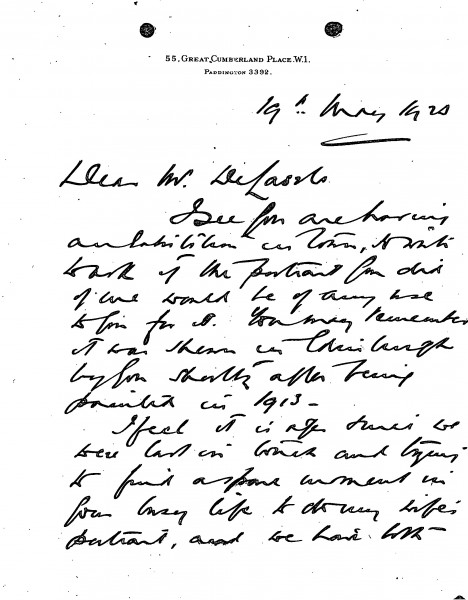 55, GREAT CUMBERLAND PLACE. W.1.
PADDINGTON 3392.
19th May 1920
Dear Mr. De Laszlo
I see you are having
an Exhibition in town, & write
to ask if the portrait you did
of me would be of any use
to you for it. You may remember
it was shown in Edinburgh
by you shortly after being
painted in 1913 -
I feel it is ages since we
were last in touch and trying
to find a spare moment in
your busy life to do my wife's
portrait, and we have both